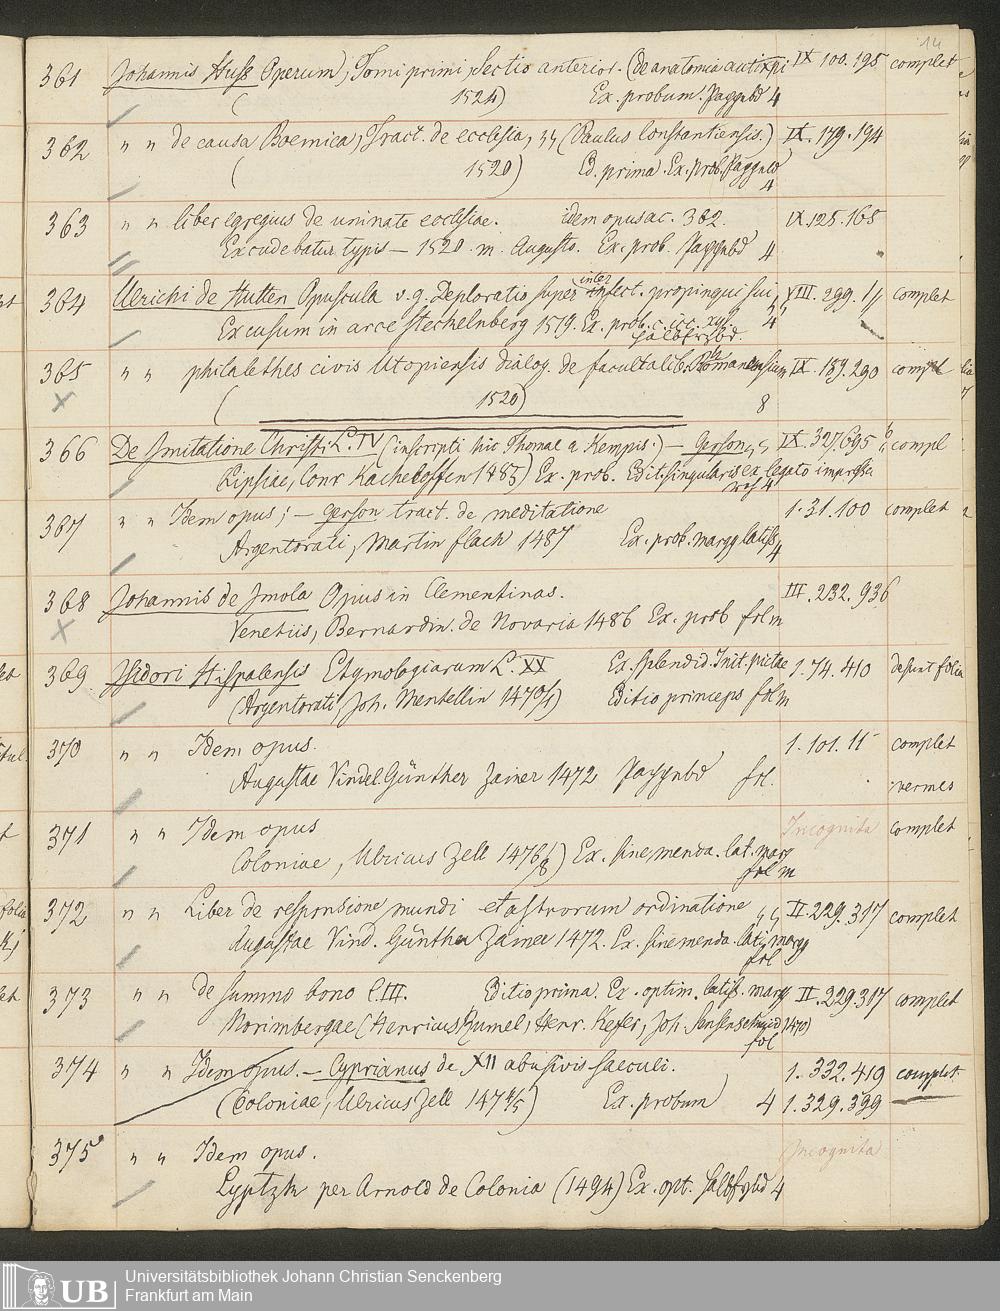 14
361 Johannis Huss Operum, Tomi primi, Sectio anterior. (De anatomia antixpi IX 100.195 complet
( 1524) Ex. probum. Paggnbd 4
362 " " de causa Boemica, Tract. de ecclesia, (Paulus Constantiensis.) IX. 179.194
( 1520) Ed. prima. Ex. prob. Paggnbd 4
363 " " liber egregius de uninate ecclesiae. idem opus ac. 362. IX.125.165
Excudebatur typis — 1520 m. Augusto. Ex. prob. Paggnbd 4
364 Ulrichi de Hutten Opuscula v.g. Deploratio super interfect. propinqui sui VIII. 299. complet
Excusum in arce Steckelnberg 1519. Ex. prob. 4
Halbfrzbd.
365 " " philalethes civis Utopiensis dialog. de facultatib. Romanensium IX. 159.290 complet
( 1520) 8
366 De Imitatione Christi. L. IV (inscripti hic Thomae a Kempis.) — Gerson IX. 327.695 b compl
Lipsiae, Conr Kacheloffen 1485) Ex. prob. Edit. singularis ex legato impressa
4
367 " " Idem opus; — Gerson tract. de meditatione 1.31.100 complet
Argentorati, Martin flach 1487 Ex. prob. margg latiss 4
368 Johannis de Imola Opus in Clementinas. III. 232.936
Venetiis, Bernardin. de Novaria 1486 Ex. prob fol m
369 Isidori Hispalensis Etymologiarum L. XX Ex. splendid. Init. pictae 1.74.410 desunt folia
(Argentorati, Joh. Mentellin 1470/1) Editio princeps fol m
370 " " Idem opus. 1. 101. 11 complet
Augustae Vindel. Günther Zainer 1472 Paggnbd fol. vermes
371 " " Idem opus Incognita complet
Coloniae, Ulricus Zell 1476/8) Ex. sine menda. lat. marg
fol m
372 " " Liber de responsione mundi et astrorum ordinatione II. 229.317 complet
Augustae Vind. Günther Zainer 1472. Ex. sine menda. latiss margg
fol
373 " " de summo bono l. III. Editio prima. Ex. optim. latiss. margg II. 229.317 complet
Norimbergae (Henricus Rumel, Henr. Kefer, Joh. Sensenschmid 1470)
fol
374 " " Idem opus. — Cyprianus de XII abusivis saeculi. 1. 332.419 complet.
(Coloniae, Ulricus Zell 1474/5) Ex. probum 4 1.329.399
375 " " Idem opus. Incognita
Lyptzk per Arnold de Colonia (1494) Ex. opt. Halbfrzbd 4
UB
Universitätsbibliothek Johann Christian Senckenberg
Frankfurt am Main